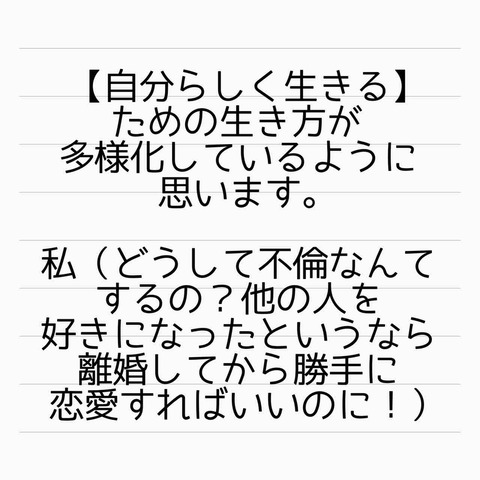 【自分らしく生きる】
ための生き方が
多様化しているように
思います。
私（どうして不倫なんて
するの？他の人を
好きになったというなら
離婚してから勝手に
恋愛すればいいのに！）